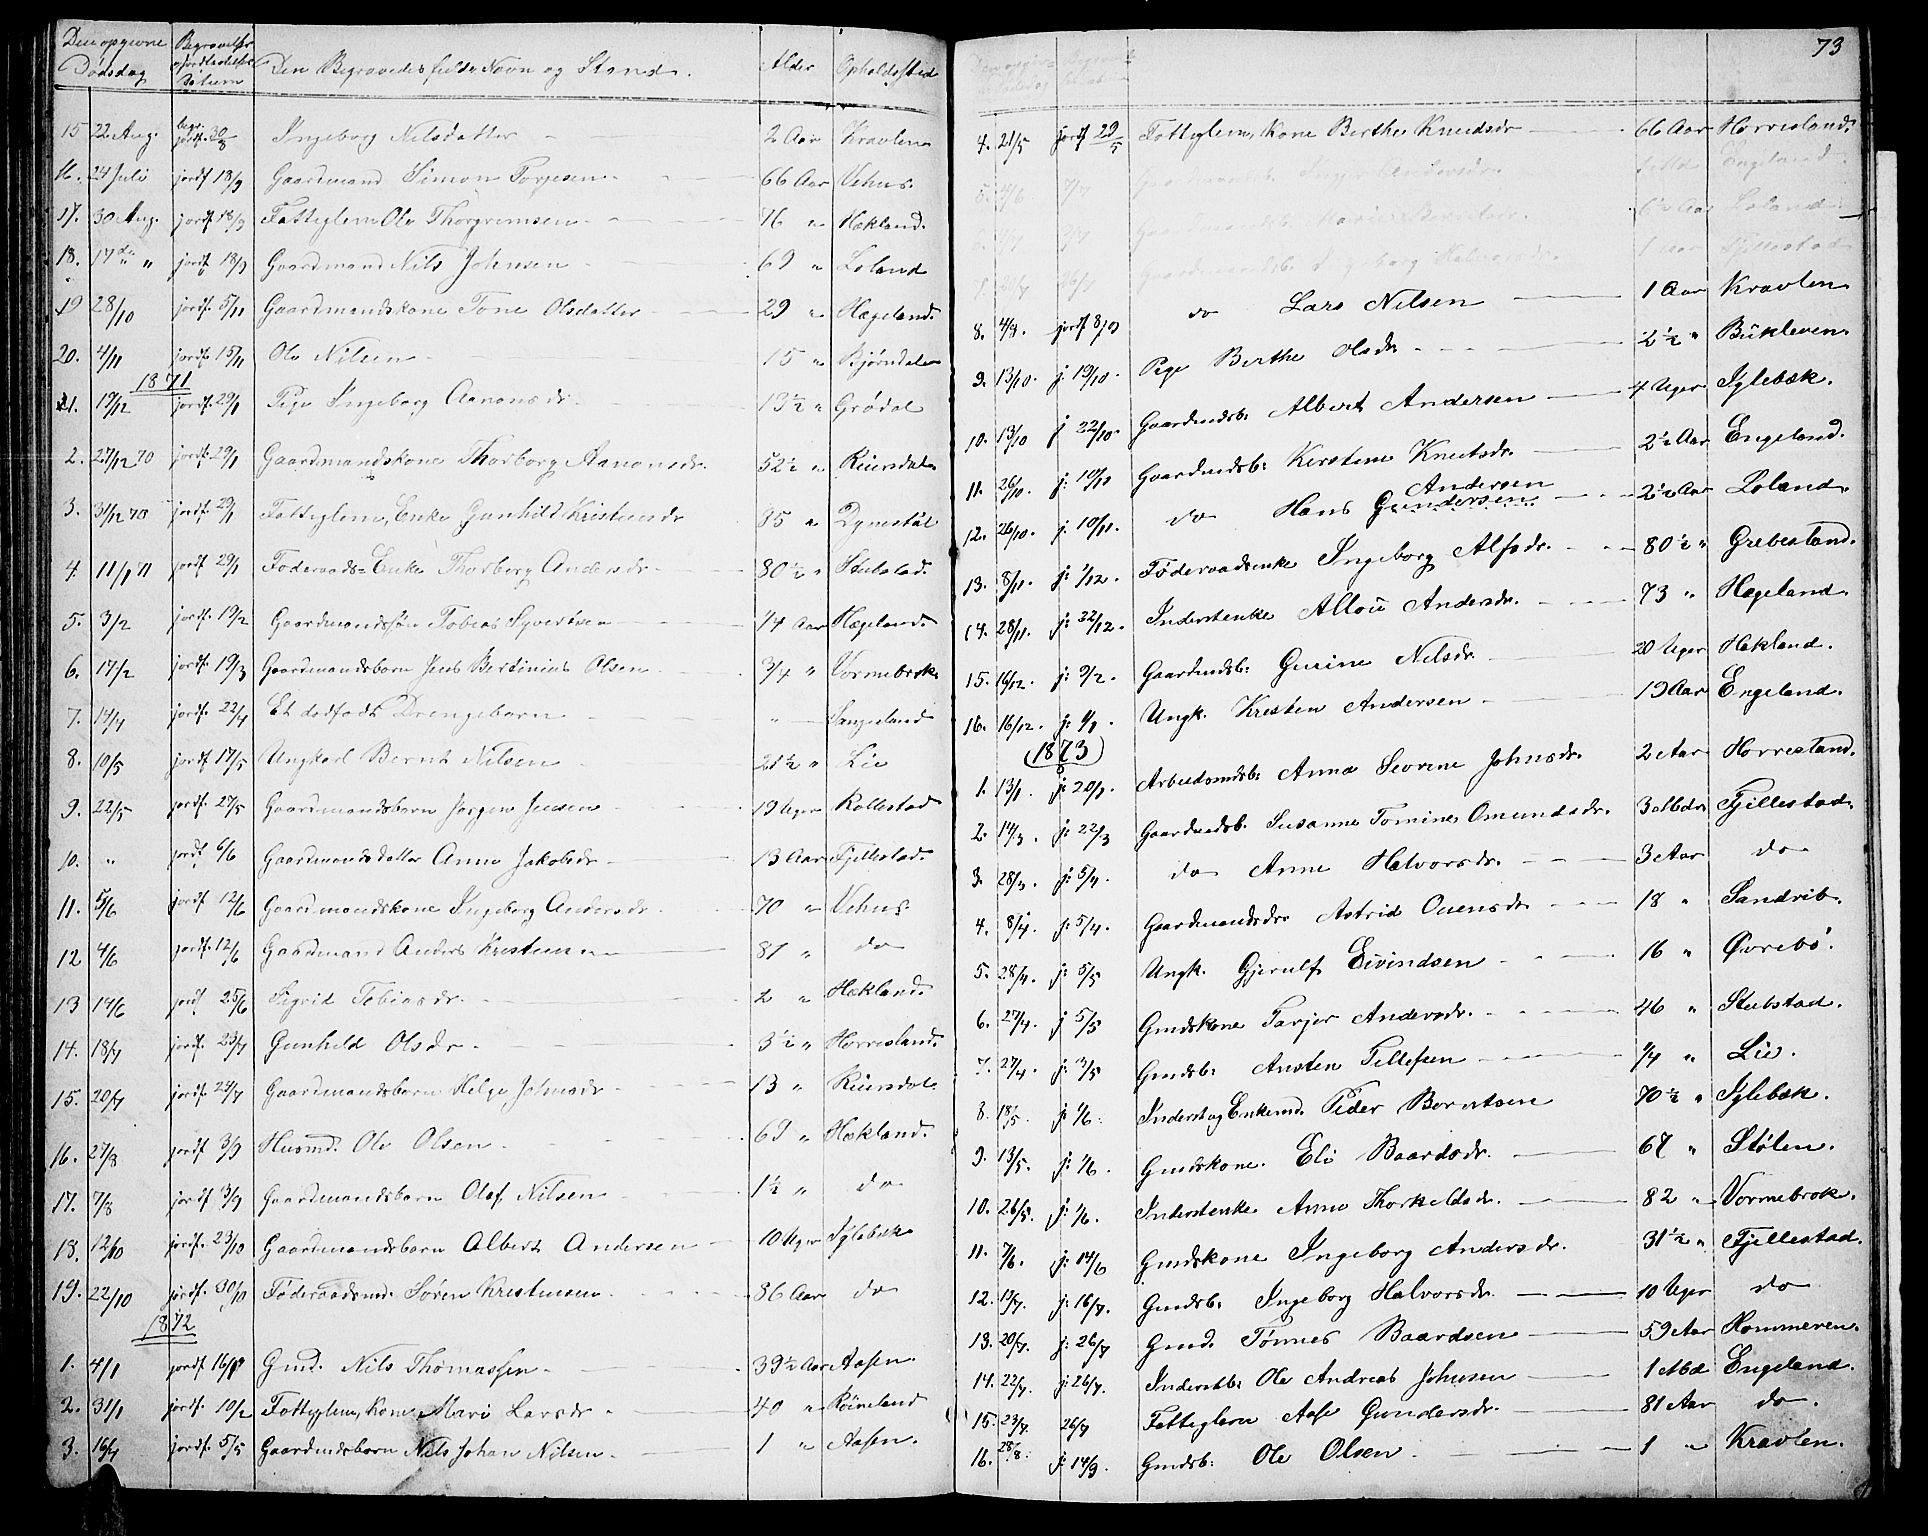 Den opgivne Dødsdag Begravelses og Jordfæstelses Datum Den Begravedes fulde Navn og Stand. Alder Opholdssted
15 22 Aug. begr. jordf. 30/8 Ingeborg Nilsdatter 2 Aar Kravlen
16. 24 Juli jordf 18/9 Gaardmand Simon Torjesen 66 Aar Vehus.
17. 30 Aug. jordf 18/9 Fattiglem Ole Thorgrimsen 76 " Hækland.
18. 17de " jordf 18/9 Gaardmand Nils Johnsen 69 " Loland
19 28/10 jordf. 5/11 Gaardmandskone Tone Olsdatter 29 " Hægeland.
20. 4/11 jordf. 15/11 Ole Nilsen 15 " Bjørndalen
1871
1. 19/12 jordf. 29/1 Pige Ingeborg Aanonsdr 13 1/2 " Grødal
2. 27/12 70 jordf. 29/1 Gaardmandskone Thorborg Aanonsdr. 52 1/2 " Reiersdal
3. 31/12 70 jordf 29/1 Fattiglem, Enke Gunhild Kristensdr 85 " Dynestøl
4. 11/1 71 jordf 29/1 Føderaads-Enke Thorborg Andersdr 80 1/2 " Stubstad.
5. 3/2 jordf. 19/2 Gaardmandssøn Tobias Syvertsen 14 Aar Hægeland.
6. 17/2 jordf. 19/3 Gaardmandsbarn Jens Bertinius Olsen 3/4 " Vormebrok.
7. 14/4 jordf. 22/4 Et dødfødt Drengebarn " Langeland
8. 10/5 jordf 17/5 Ungkarl Bernt Nilsen 21 1/2 " Lie
9. 22/5 jordf. 27/5 Gaardmandsbarn Jørgen Jensen 19 Uger Kollestad
10. " jordf 6/6 Gaardmandsdatter Anne Jakobsdr 13 Aar Fjellestad.
11. 5/6 jordf 12/6 Gaardmandskone Ingeborg Andersdr 70 " Vehus.
12 4/6 jordf. 12/6 Gaardmand Anders Kristensen 81 " do
13 19/6 jordf 25/6 Sigrid Tobiasdr. 2 " Hækland.
14. 18/7 jordf. 23/7 Gunhild Olsdr 3 1/2 " Horrisland.
15. 20/7 jordf. 24/7 Gaardmandsbarn Helge Johnsdr 13 " Reiersdal
16. 27/8 jordf 3/9 Husmd. Ole Olsen 69 " Hækland.
17. 7/8 jordf 3/9 Gaardmandsbarn Olaf Nilsen 1 1/2 " do
18. 12/10 jordf. 23/10 Gaardmandsbarn Albert Andersen 10 Uger Iglebæk
19. 22/10 jordf. 30/10 Føderaadsmd. Søren Kristensen 86 Aar do
1872
1. 4/1 jordf 16/1 Gmd. Nils Thomassen 39 1/2 Aar Aasen.
2. 31/1 jordf. 10/2 Fattiglem, Kone Mari Larsdr 40 " Røineland
3. 16/4 jordf. 5/5 Gaardmdsbarn Nils Johan Nilsen 1 " Aasen.
73
4. 21/5 jordf 29/5 Fattiglem, Kone Berthe Knudsdr 66 Aar Horrisland.
5. Gaardmandsb. Inger Andersdr. Engeland.
6 1/2 Aar Loland
Gaardmandsb. Ingeborg Halvorsdr. 1 Aar Fjellestad
8. 4/8. jordf 8/9 do Lars Nilsen 1 Aar Kravlen
9. 13/10. j: 19/10. Pige Berthe Olsdr 2 1/2 " Bukleven.
10. 13/10 j 22/10. Gaardmdsb: Albert Andersen 4 Uger Iglebæk.
11. 26/10. j: 10/11 Gaardmdsb: Kirstine Knutsdr. 2 1/2 Aar Engeland.
12. 26/10. j: 10/11. do Hans Gundersen Andersen 2 1/2 Aar Loland.
13. 8/11. j: 1/12. Føderaadsenke Ingeborg Alfsdr. 80 1/2 " Grebestand.
14. 28/11. j: 22/12. Inderstenke Allou Andersdr. 73 " Hægeland.
15. 16/12. j: 9/2. Gaardmdsb: Gurine Nilsdr. 20 Uger Hækland.
16. 16/12. j: 1/1. Ungk. Kristen Andersen 19 Aar Engeland.
(1873)
1. 13/1. j: 20/1. Arbeidsmdsb: Anna Severine Johnsdr. 2 Aar Horrestand.
2. 14/3. j: 22/3 Gaardmdsb. Susanne Tomine Omundsdr. 3 Mdr Fjellestad.
3. 28/3. j: 5/4. do Anne Halvorsdr. 3 Aar do
4. 8/4. j: 5/4. Gaardmandsdr Astrid Ouensdr 18 " Sandrib.
5. 28/4. j: 5/5 Ungk. Gjerulf Eivindsen 16 " Øvrebø.
6. 27/4. j 5/5 Gmdskone Tarjer Andersdr. 46 " Stubstad.
7. 27/4. j: 3/5 Gmdsb: Austen Tellefsen 1/4 " Lie.
8. 18/5. j: 1/6. Inderst og Enkemd. Peder Berentsen 70 1/2 " Iglebæk.
9. 13/5. j: 1/6. Gmdskone. Eli Baardsdr. 67 " Stølen.
10. 26/5. j: 1/6. Inderstenke Anne Thorkeldsdr. 82 " Vormebrok.
11. 7/6. j: 14/6 Gmdskone Ingeborg Andersdr. 31 1/2 " Fjellestad.
12. 13/7. j: 16/7. Gmdsb: Ingeborg Halvorsdr. 10 Uger do
13. 20/7. j: 26/7 Gmd. Tønnes Baardsen 59 Aar Kommeren.
14. 22/7. j: 26/7. Inderstb: Ole Andreas Johnsen 1 Md Engeland.
15. 23/7. 26/7 Fattiglem Aase Gundersdr. 81 Aar do.
16. 28/8. j: 14/9. Gmdsb: Ole Olsen 1 " Kravlen.